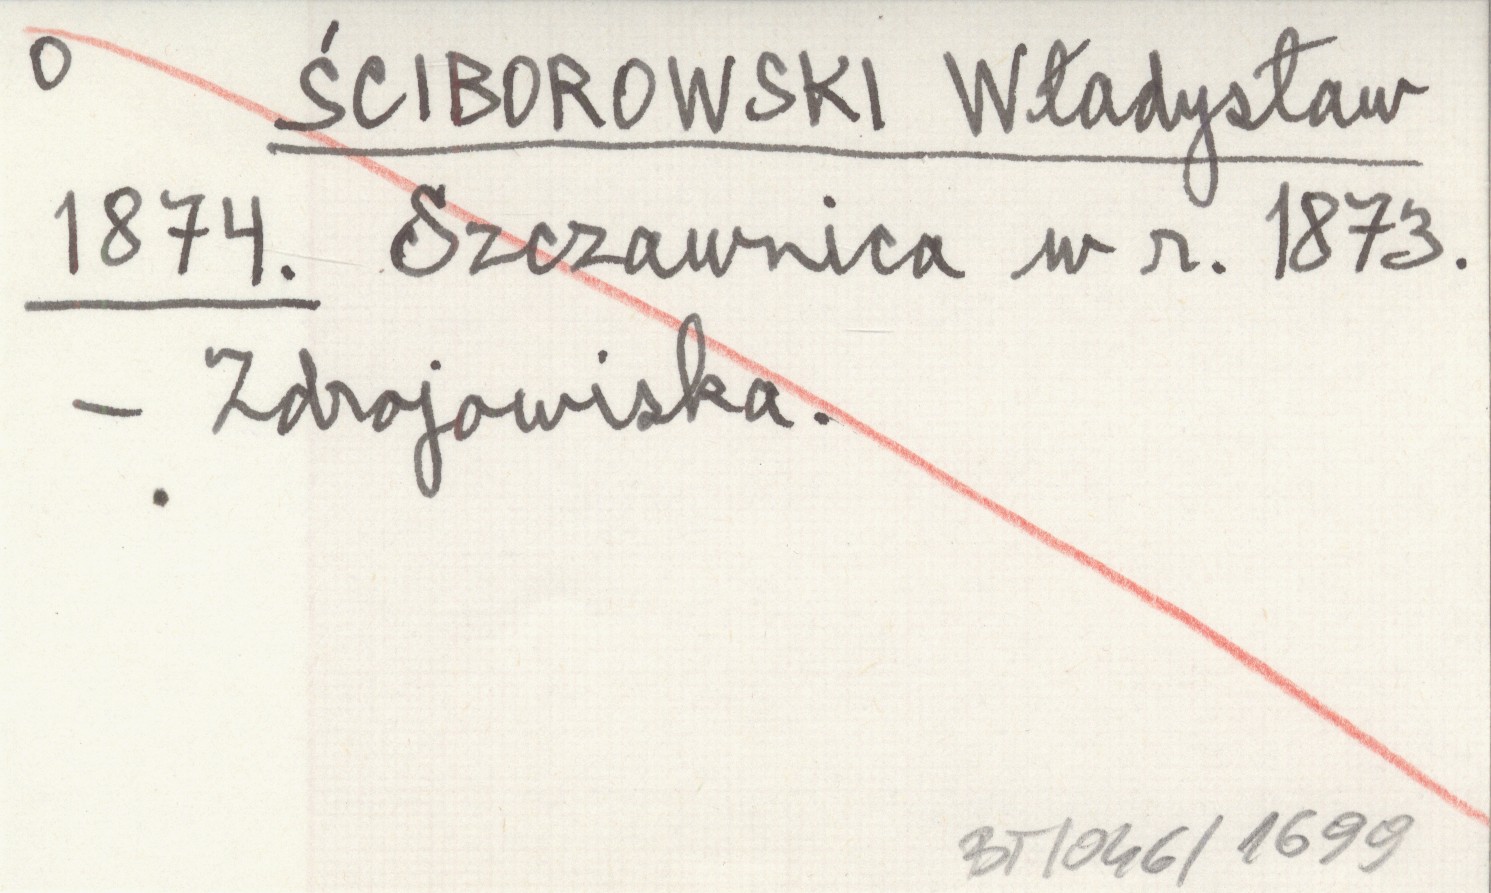 0 ŚCIBOROWSKI Władysław
1874. Szczawnica w r. 1873.
— Zdrojowiska.
BT/046/1699